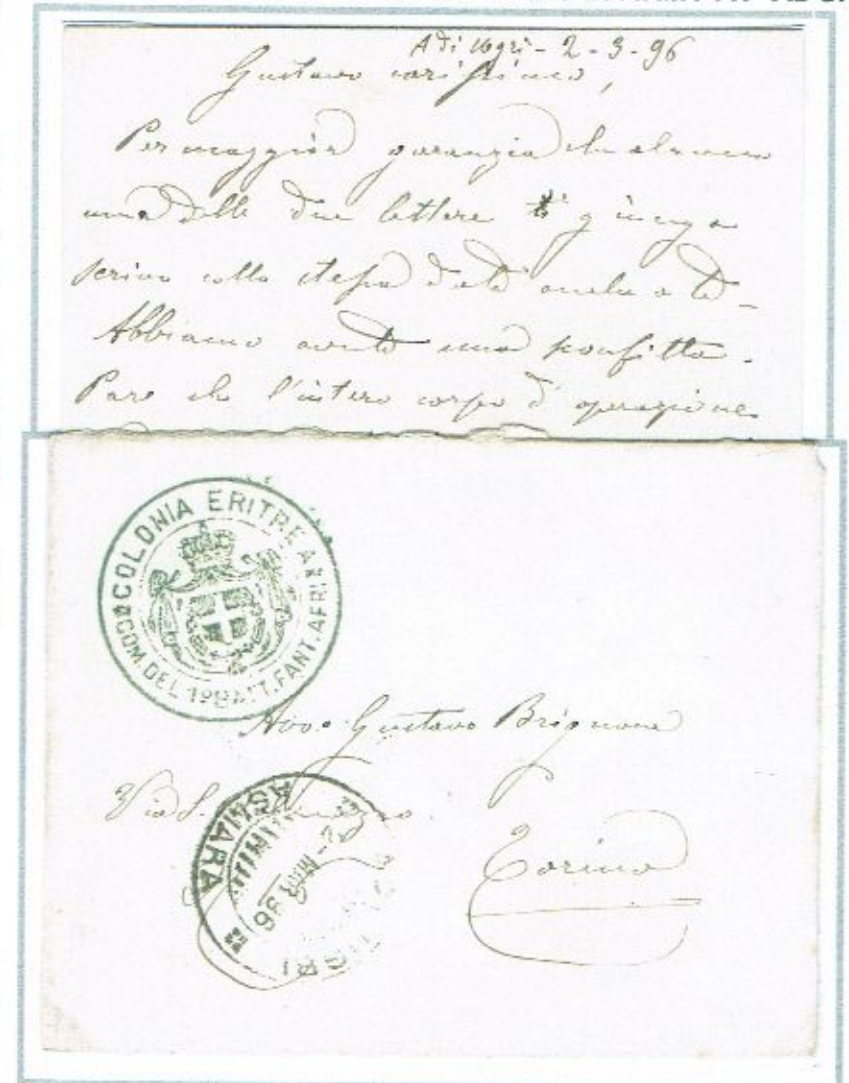 Adi Ugri - 2 - 3 - 96
Gustavo carissimo,
Per maggior garanzia che almeno
una delle due lettere ti giunga
scrivo colla stessa data anche a te -
Abbiamo avuto una sconfitta.
Pare che l'intero corpo d'operazione
COLONIA ERITREA
COM. DEL 1° BATT. FANT. AFRI
Avv. Gustavo Brignone
Via S.
Torino
ASMARA
MAR 96